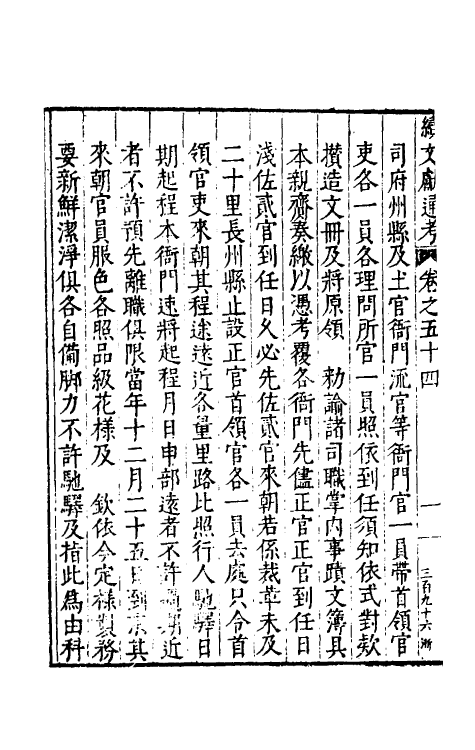 續文獻通考 卷之五十四 一 三百九十六 浙
司府州縣及土官衙門流官等衙門官一員帶首領官
吏各一員各理問所官一員照依到任須知依式對款
攢造文冊及將原領 勅諭諸司職掌內事蹟文簿具
本親齎奏繳以憑考覆各衙門先儘正官正官到任日
淺佐貳官到任日久必先佐貳官來朝若係裁革未及
二十里長州縣止設正官首領官各一員去處只令首
領官吏來朝其程途遠近各量里路比照行人馳驛日
期起程本衙門速將起程月日申部遠者不許過期近
者不許預先離職俱限當年十二月二十五日到京其
來朝官員服色各照品級花樣及 欽依今定樣製務
要新鮮潔淨俱各自備脚力不許馳驛及指此為由科